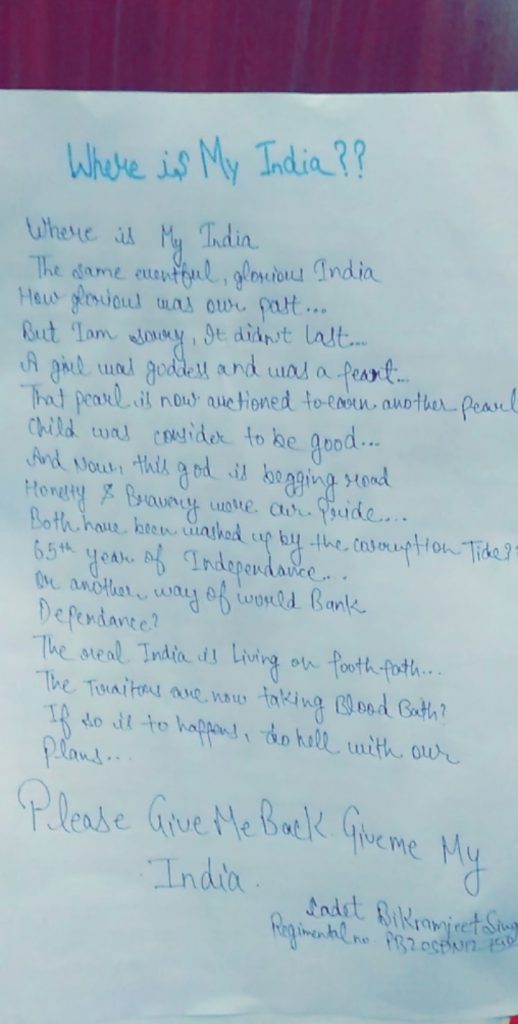 Where is My India??
Where is My India
The same eventful, glorious India
How glorious was our past...
But I am sorry, It didn't last...
A girl was goddess and was a pearl...
That pearl is now auctioned to earn another pearl
Child was consider to be good...
And Now, this god is begging road
Honesty & Bravery were our Pride....
Both have been washed up by the corruption Tide??
65th year of Independance...
Or another way of world Bank
Dependance?
The real India is Living on footh-path...
The Traitors are now taking Blood Bath?
If so is to happens, to hell with our
Plans...
Please Give Me Back Give me My
India.
Cadet Bikramjeet Sing
Regimental no.